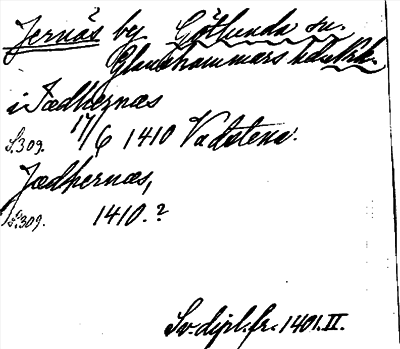 Jernäs by Götlunda sn.
Glanshammars hd
i Jædhernæs
S. 309. 17/6 1410 Vadstena.
Jædhernæs,
S. 309. 1410.?
Sv. dipl. fr. 1401. II.